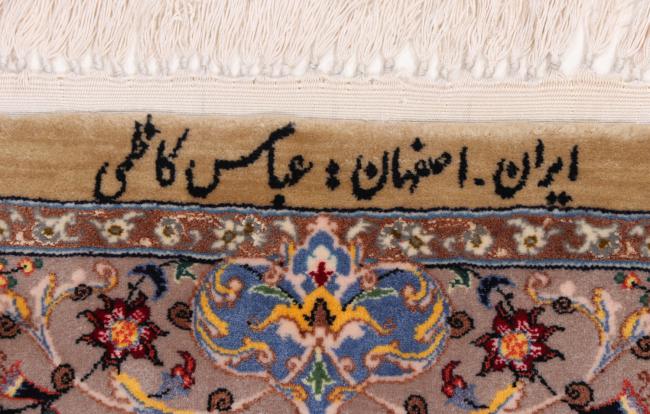 ایران - اصفهان : عباس کاظمی